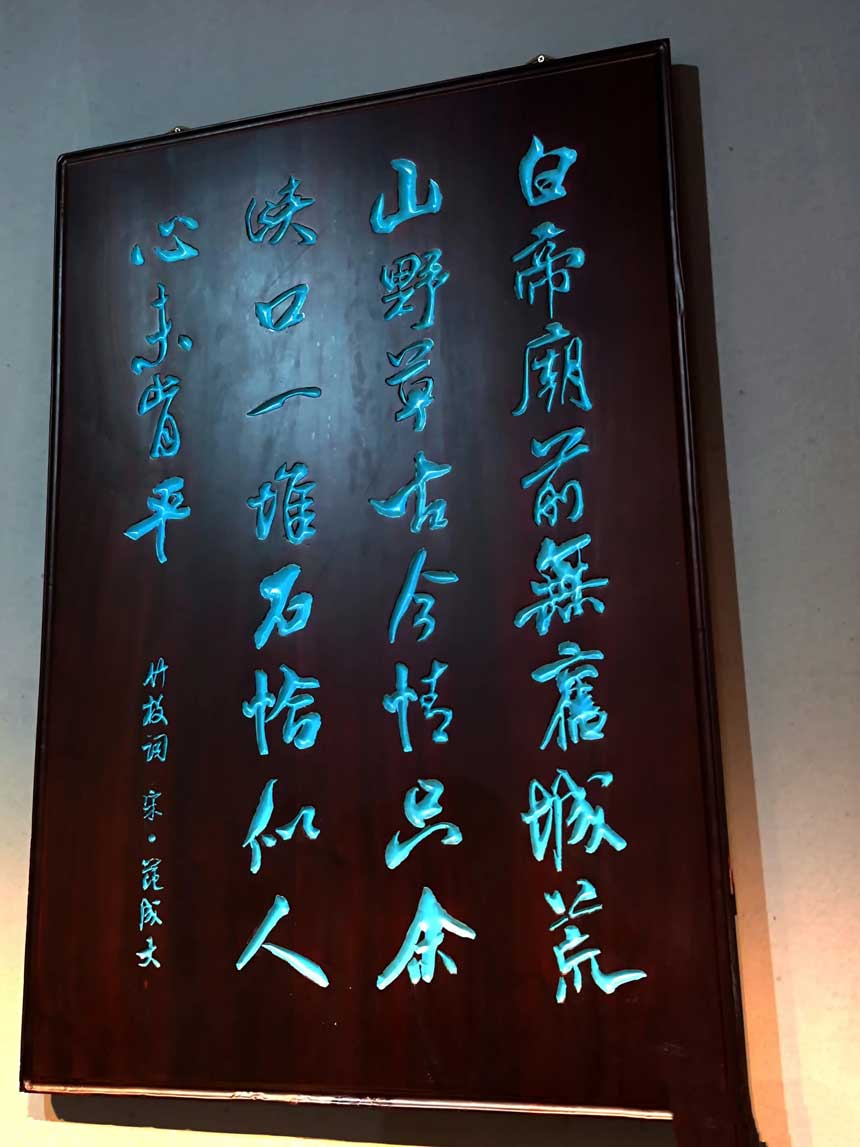 白帝廟前無舊城荒
山野草古今情只余
峡口一堆石恰似人
心未肯平
竹枝词 宋·范成大